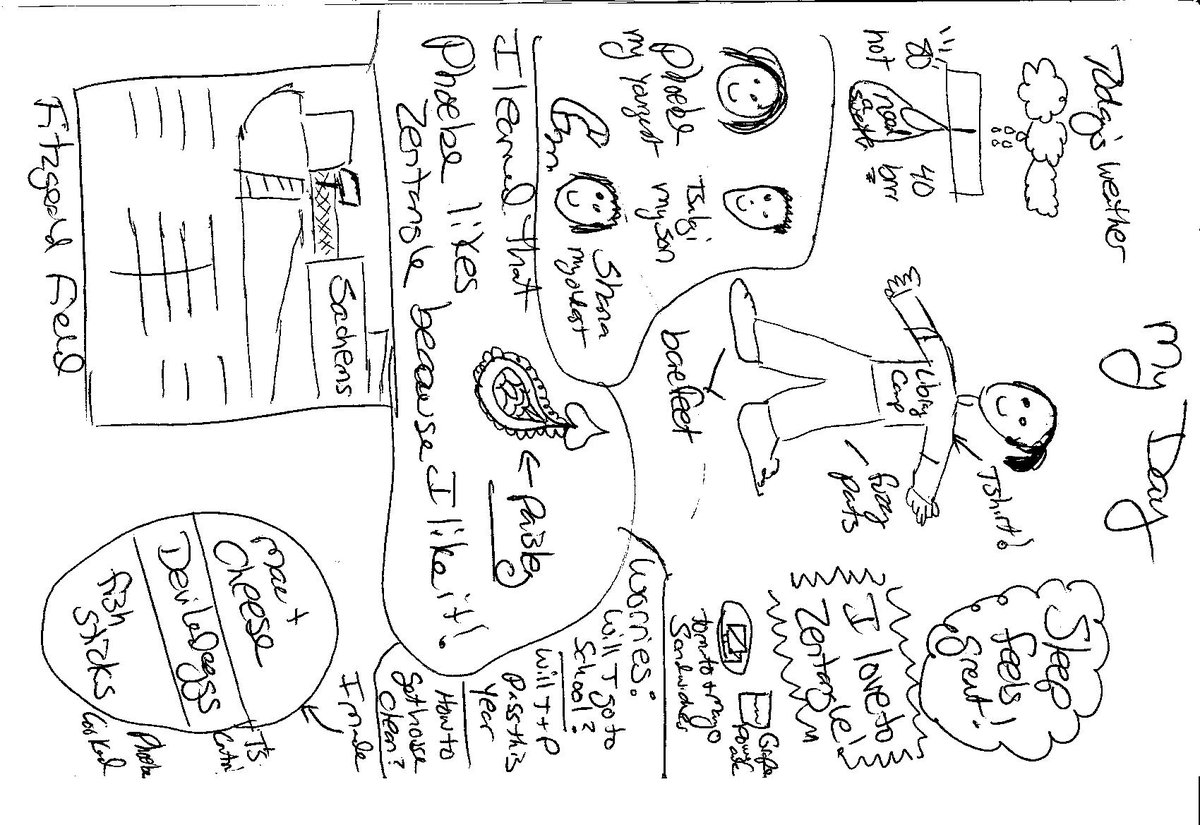 My Day
Today's weather
80
hot
need
skate
40
brr
Library
Camp
Tshirt!
fuzzy
pants
bare feet
Sleep
feels
great!
I love to
Zentangle!
tomato + mayo
Sandwiches
Grape
power
ade
Phoebe
my youngest
my son
Shana
my oldest
I learned that
Phoebe likes
Zentangle because I like it!
← Paisley
Worries:
Will I go to
School?
Will T + P
pass this
year
How to
get house
Clean?
I made
Mac +
Cheese
Deviled eggs
fish
sticks
T's
Phoebe
cooked
Sachems
Fitzgerald Field